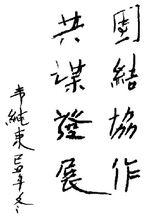 團結協作
共謀發展
韦純束己丑年冬